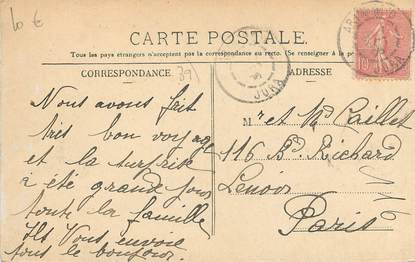 10 €
CARTE POSTALE
Tous les pays étrangers n'acceptent pas la correspondance au recto. (Se renseigner à la
CORRESPONDANCE
39
ADRESSE
JURA
10
Nous avons fait
très bon voyage
et la surprise
a été grande pour
toute la famille
Ils Vous envoie
tous le bonjour
Mr et Md Caillet
116 Bd Richard
Lenoir
Paris